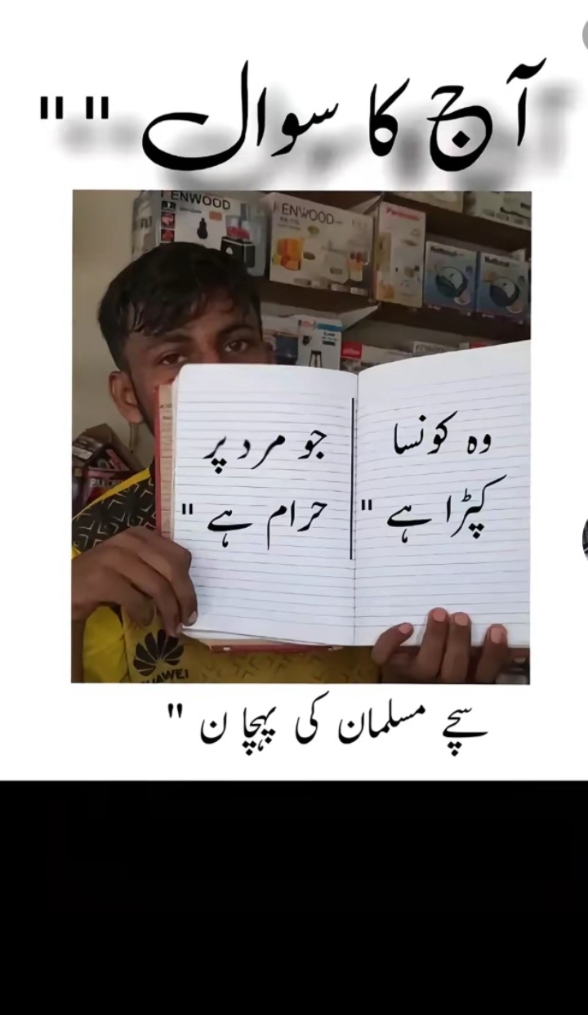 آج کا سوال " "
KENWOOD
KENWOOD
Panasonic
وہ کونسا
کپڑا ہے "
جو مرد پر
حرام ہے "
HUAWEI
سچے مسلمان کی پہچا ن "